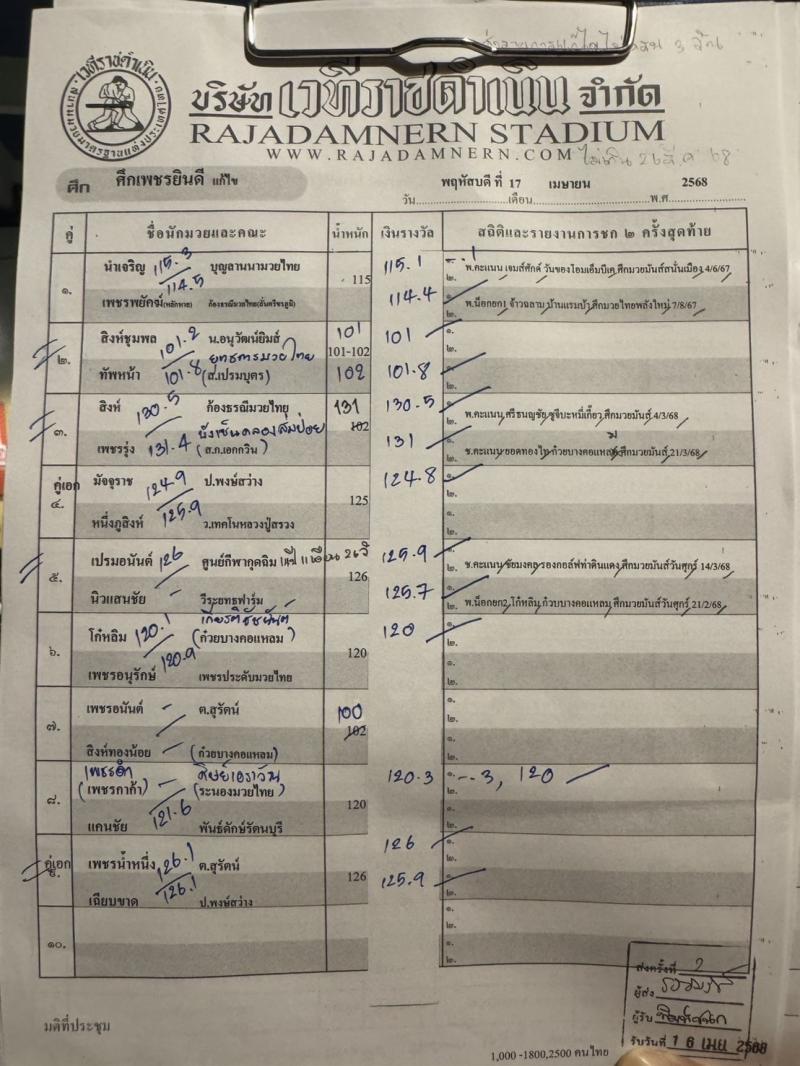 เวทีราชดำเนิน
บริษัท เวทีราชดำเนิน จำกัด
RAJADAMNERN STADIUM
WWW.RAJADAMNERN.COM
ไม่เกิน 26 มี.ค 68
ศึก ศึกเพชรยินดี แก้ไข
พฤหัสบดี ที่ 17 เมษายน 2568
วัน เดือน พ.ศ
คู่ ชื่อนักมวยและคณะ น้ำหนัก เงินรางวัล สถิติและรายงานการชก ๒ ครั้งสุดท้าย
นำเจริญ 115.3 บุญลานนามวยไทย 115.1 ๑. พ.คะแนน เจมส์ศักดิ์ วันของโอมเอ็มบีเค ศึกมวยมันส์สนั่นเมือง 4/6/67
๑. 114.5 115 ๒.
เพชรพยัคฆ์(พลักหาย) ก้องธรณีมวยไทย 114.4 ๑. พ.น็อกยก1 จ้าวฉลาม บ้านแรมบ้า ศึกมวยไทยพลังใหม่ 7/8/67
๒.
สิงห์ชุมพล 101.2 น.อนุวัฒน์ยิมส์ 101 101 ๑.
๒. ยุทธการมวยไทย 101-102 ๒.
ทัพหน้า 101.8 (ส.เปรมบุตร) 102 101.8 ๑.
๒.
สิงห์ 130.5 ก้องธรณีมวยไทย 131 130.5 ๑. พ.คะแนน ศรีธนญชัย ซูจีบะหมี่เกี๊ยว ศึกมวยมันส์ 4/3/68
๓. 102 ๒.
เพชรรุ่ง 131.4 (ส.ก.เอกกวิน) 131 ๑. ช.คะแนน ยอดทองไท ก๋วยบางคอแหลม ศึกมวยมันส์ 21/3/68
๒.
คู่เอก มัจจุราช 124.9 ป.พงษ์สว่าง 124.8 ๑.
๔. 125 ๒.
หนึ่งภูสิงห์ 125.9 ว.เทคโนหลวงปู่สรวง ๑.
๒.
เปรมอนันต์ 126 ศูนย์กีฬากุดฉิม 125.9 ๑. ช.คะแนน ชัยมงคล รองกอล์ฟท่าดินแดง ศึกมวยมันส์วันศุกร์ 14/3/68
๕. 126 ๒.
นิวแสนชัย วีระยุทธฟาร์ม 125.7 ๑. พ.น็อกยก2 โก๋หลิม ก๋วบบางคอแหลม ศึกมวยมันส์วันศุกร์ 21/2/68
๒.
เกียรติชัชนันต์
โก๋หลิม 120.1 (ก๋วยบางคอแหลม) 120 ๑.
๖. 120.9 120 ๒.
เพชรอนุรักษ์ เพชรประดับมวยไทย ๑.
๒.
เพชรอนันต์ ต.สุรัตน์ 100 ๑.
๗. 102 ๒.
สิงห์ทองน้อย (ก๋วยบางคอแหลม) ๑.
๒.
เพชรดำ ศิษย์เอราวัน 120.3 ๑. -- 3, 120
(เพชรกาก้า) (ระนองมวยไทย) ๒.
๘. 121.6 120 ๑.
แคนชัย พันธ์ดักษ์รัตนบุรี ๒.
คู่เอก เพชรน้ำหนึ่ง 126.1 ต.สุรัตน์ 126 ๑.
๙. 126 ๒.
เฉียบขาด 126.1 ป.พงษ์สว่าง 125.9 ๑.
๒.
๑๐. ๑.
๒.
๑.
๒.
มติที่ประชุม
1,000 -1800,2500 คนไทย
ส่งครั้งที่ 2
ผู้ส่ง
ผู้รับ
รับวันที่ 1 6 เมย 2568